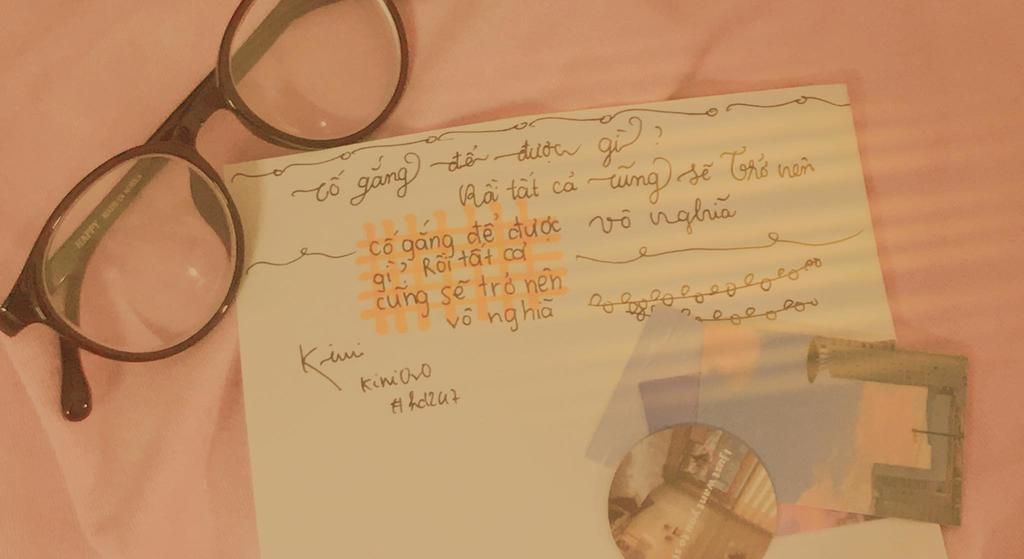 HAPPY
cố gắng để được gì?
Rồi tất cả cũng sẽ trở nên
vô nghĩa
cố gắng để được
gì? Rồi tất cả
cũng sẽ trở nên
vô nghĩa
Kini
Kini0v0
#hd247
i just